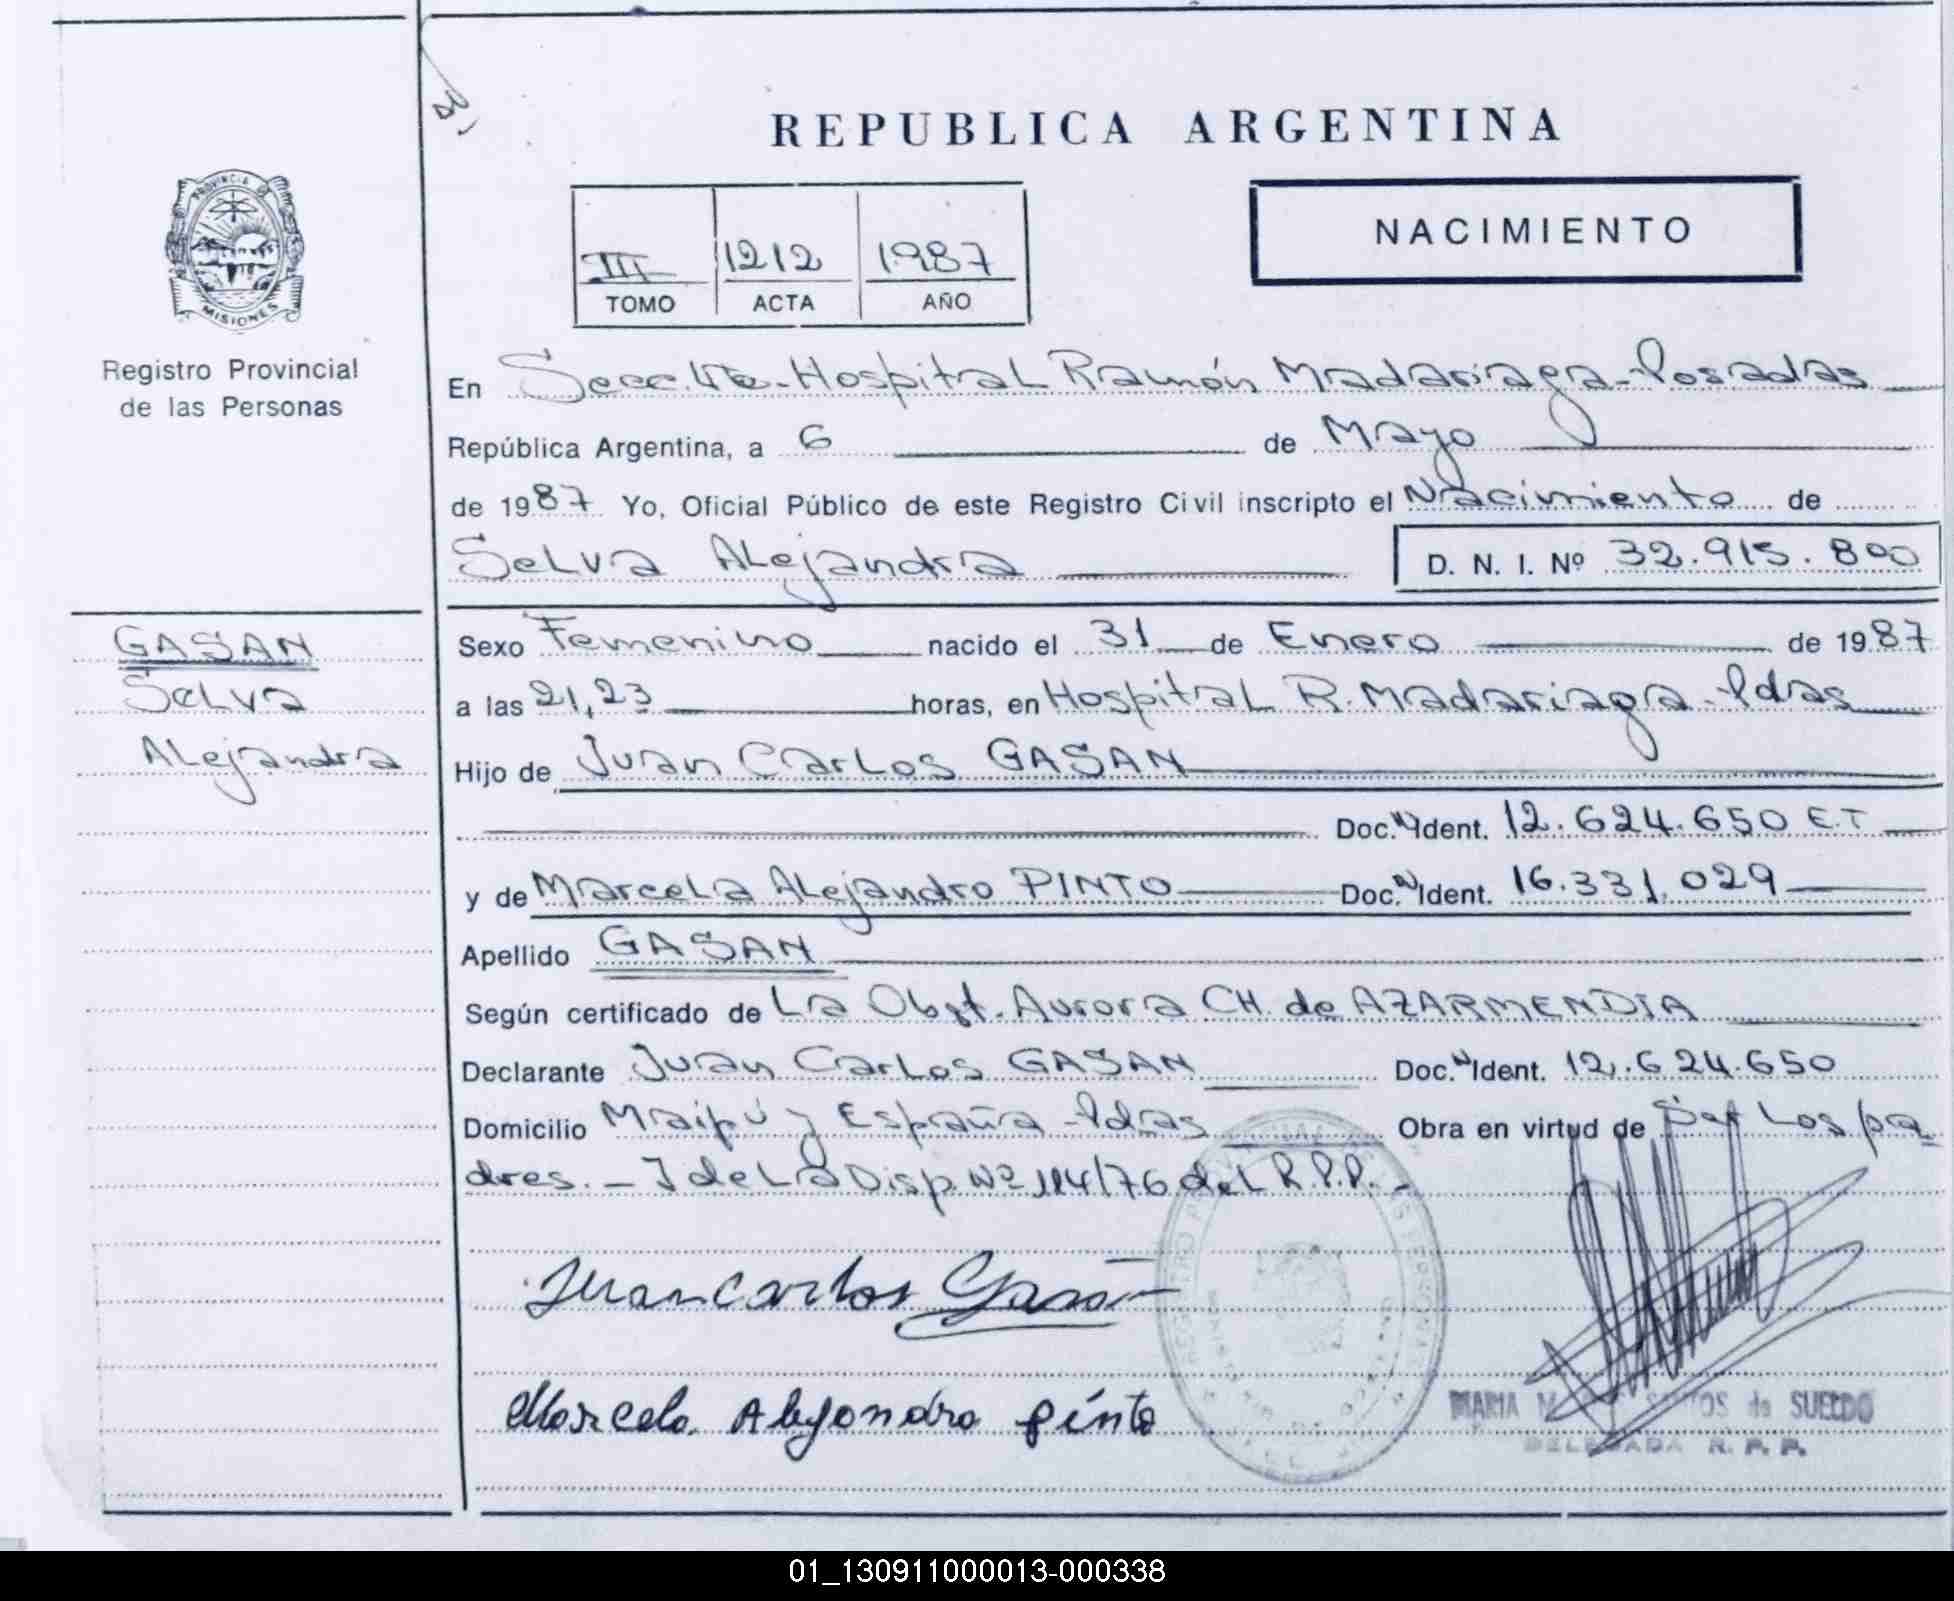 REPUBLICA ARGENTINA
PROVINCIA DE
MISIONES
Registro Provincial
de las Personas
III 1212 1987
TOMO ACTA AÑO
NACIMIENTO
En Secc. 4ta.-Hospital Ramón Madariaga-Posadas
República Argentina, a 6 de Mayo
de 1987 Yo, Oficial Público de este Registro Civil inscripto el Nacimiento de
Selva Alejandra D. N. I. Nº 32.915.800
GASAN
Selva
Alejandra
Sexo Femenino nacido el 31 de Enero de 1987
a las 21,23 horas, en Hospital R. Madariaga-Pdas
Hijo de Juan Carlos GASAN
Doc. N Ident. 12.624.650 E.T
y de Marcela Alejandro PINTO Doc. N Ident. 16.331.029
Apellido GASAN
Según certificado de La Obst. Aurora CH. de AZARMENDIA
Declarante Juan Carlos GASAN Doc. N Ident. 12.624.650
Domicilio Maipú y España-Pdas Obra en virtud de Sef Los pa
dres.- J de La Disp. Nº 114/76 del R.P.P.-
Juan Carlos Gasan
Marcela Alejandro pinto
MARIA SANTOS de SUELDO
DELEGADA R. P. P.
01_130911000013-000338